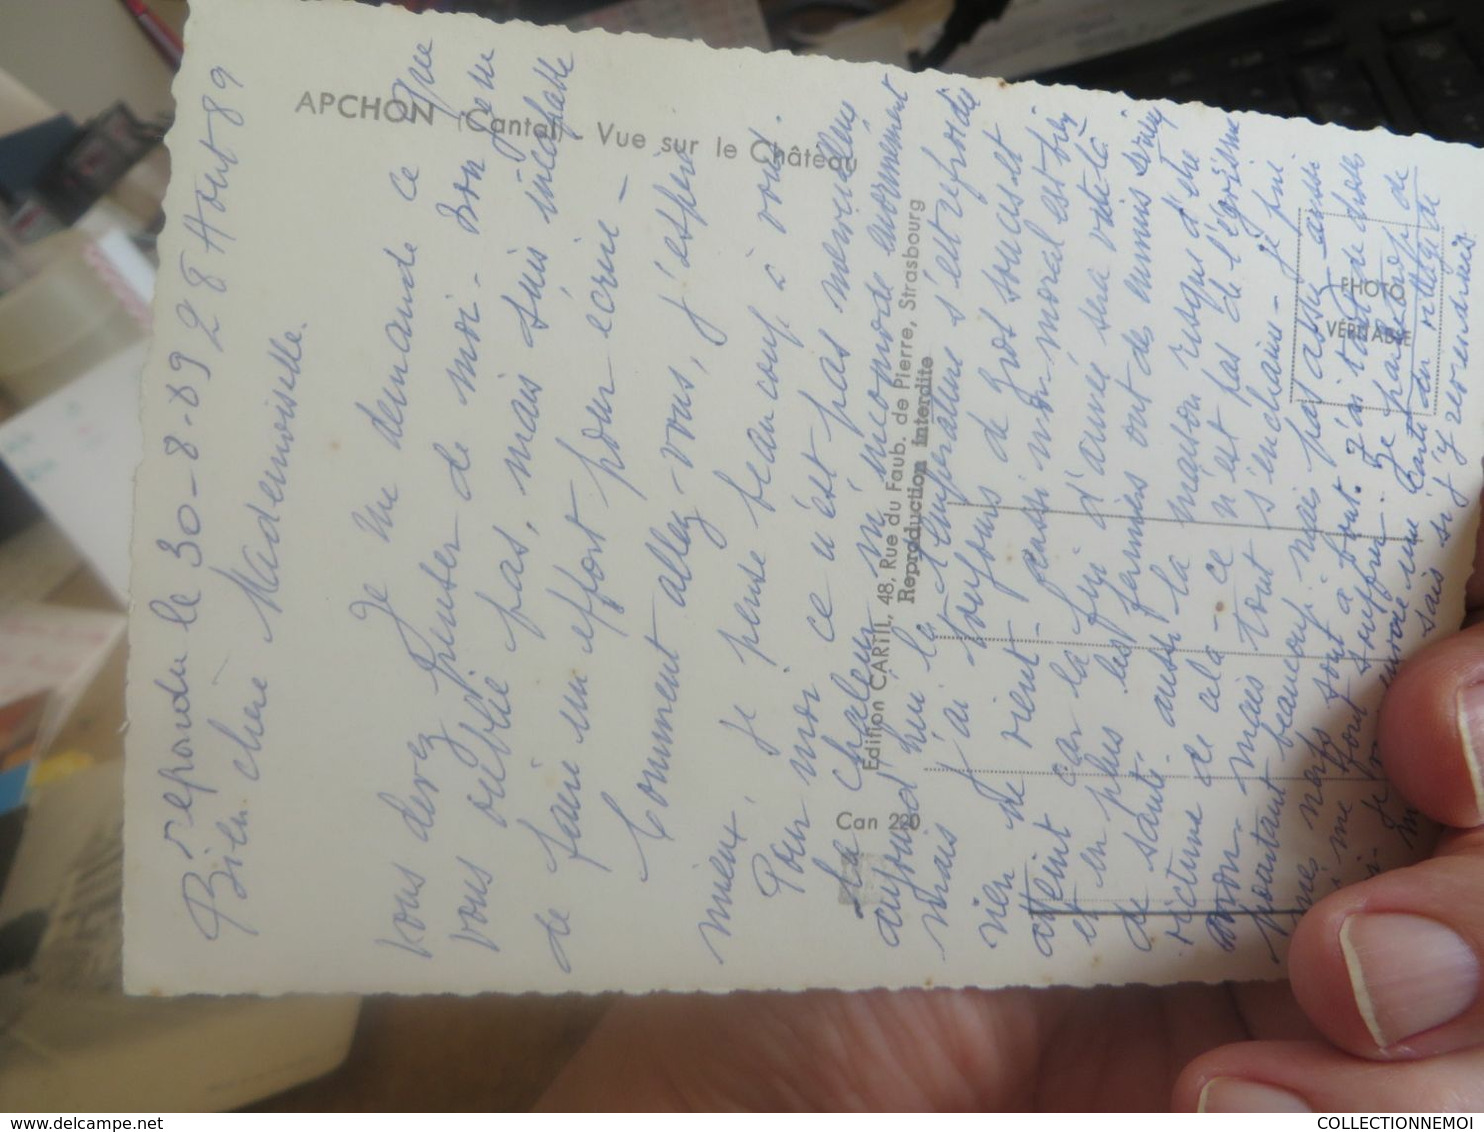 répondu le 30-8-89 28 Aout 89
Bien chère Mademoiselle.
Je me demande ce que
vous devez penser de moi. Non je ne
vous oublie pas, mais suis incapable
de faire un effort pour écrire -
Comment allez-vous, j'espère
mieux, je pense beaucoup à vous.
Pour moi ce n'est pas merveilleux
la chaleur m'incommode énormément
aujourd'hui la température s'est refroidie
mais j'ai toujours de gros soucis et
rien ne vient. aussi mon moral est bien
atteint car la fin d'année sera vite là
et en plus les fermiers ont des ennuis sérieux
de santé. aussi la maison risque d'être
victime de cela - ce n'est pas de l'égoïsme
non. mais tout s'enchaîne - je prie
pourtant beaucoup. mais pas assez aussi
mes nerfs sont à bout. J'ai tant de choses
qui me font souffrir. Je
Je vous envoie une carte du village de
sais si j'y reviendrais.
APCHON (Cantal) Vue sur le Château
Can 220
Edition CARTIL, 48, Rue du Faub. de Pierre, Strasbourg
Reproduction interdite
PHOTO
VÉRITABLE
COLLECTIONNEMOI